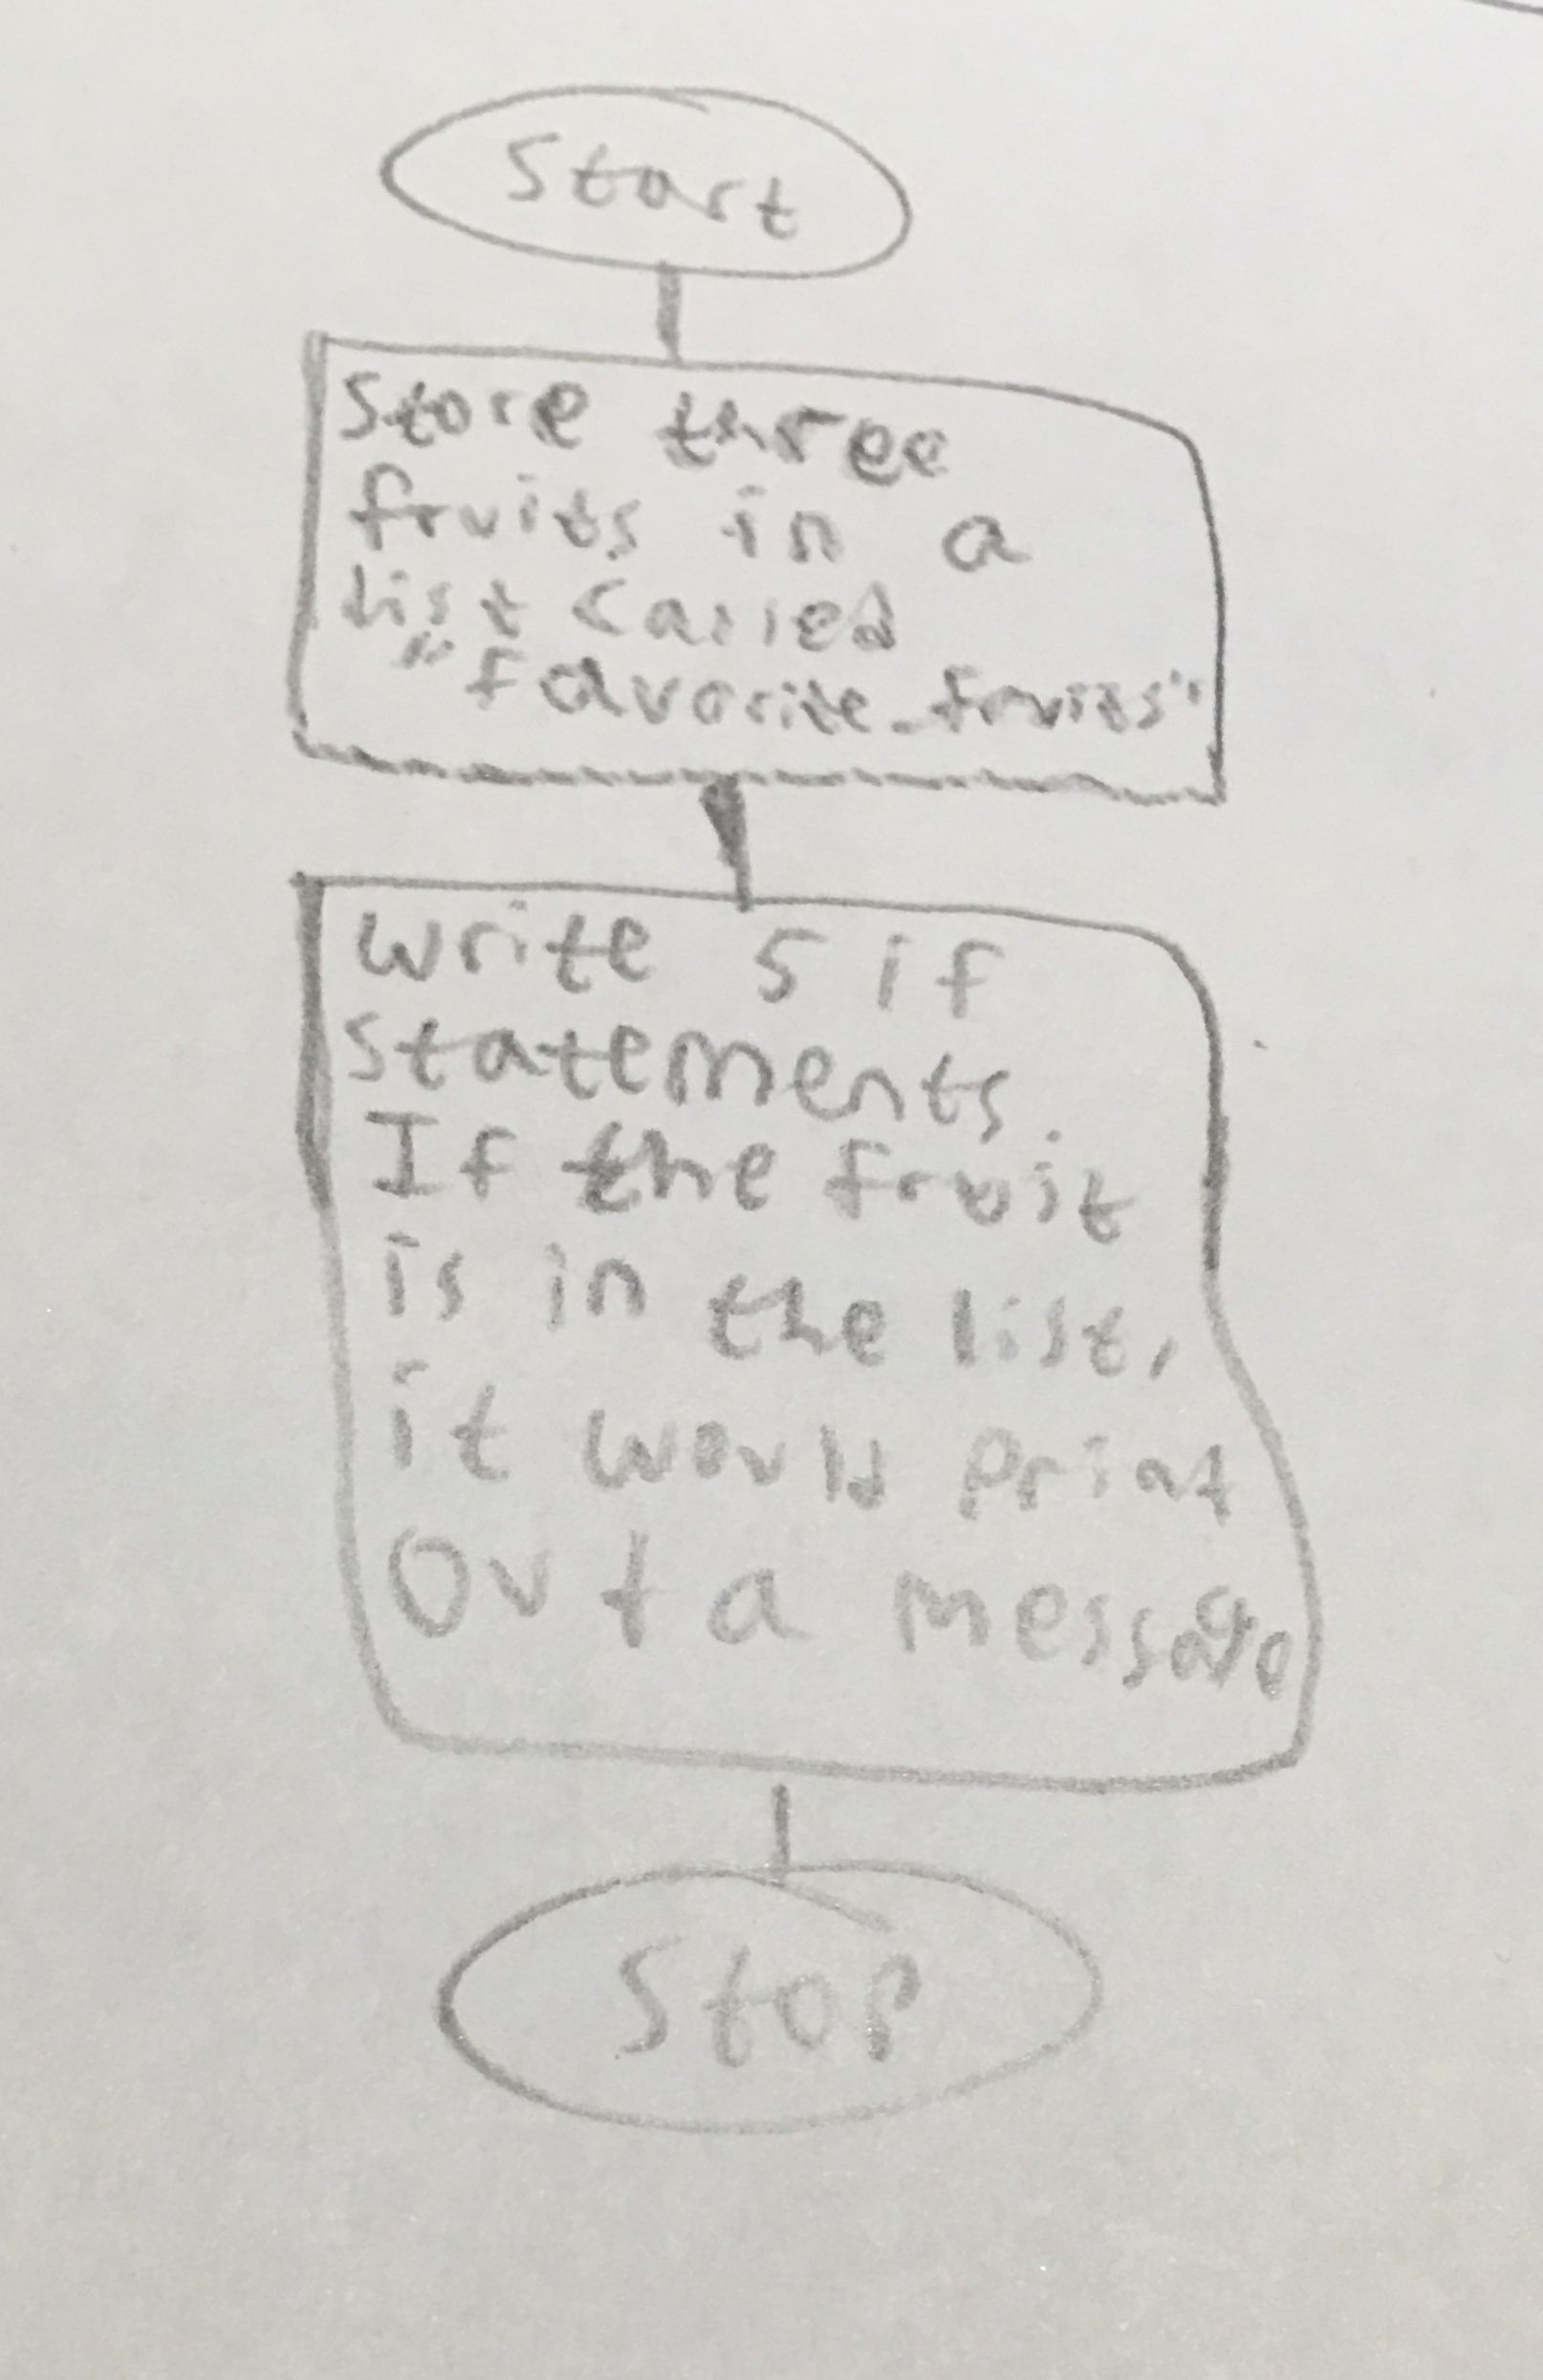 Start
Store three
fruits in a
list called
"favorite_fruits"
Write 5 if
statements.
If the fruit
is in the list,
it would print
Out a message
Stop